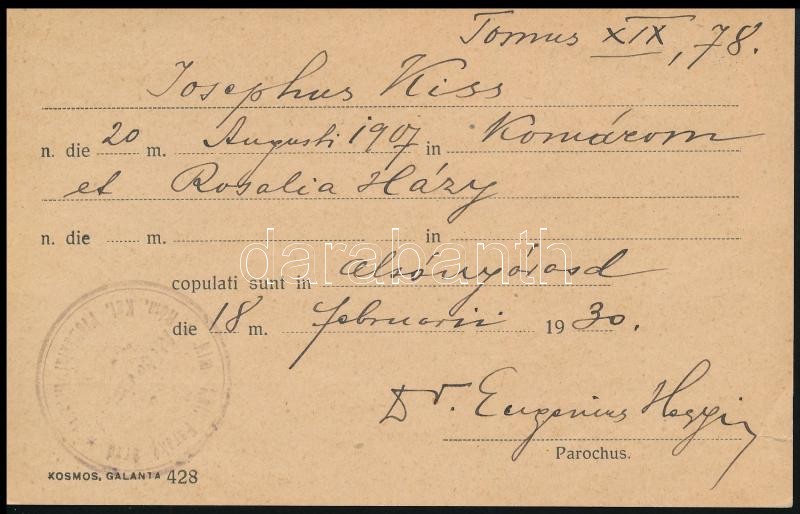 Tomus XIX, 78.
Josephus Kiss
n. die 20 m. Augusti 1907 in Komárom
et Rosalia Házy
n. die m. in
darabanth
copulati sunt in Alsónyárasd
die 18 m. februarii 1930.
Dr. Eugenius
Parochus.
KOSMOS, GALANTA 428